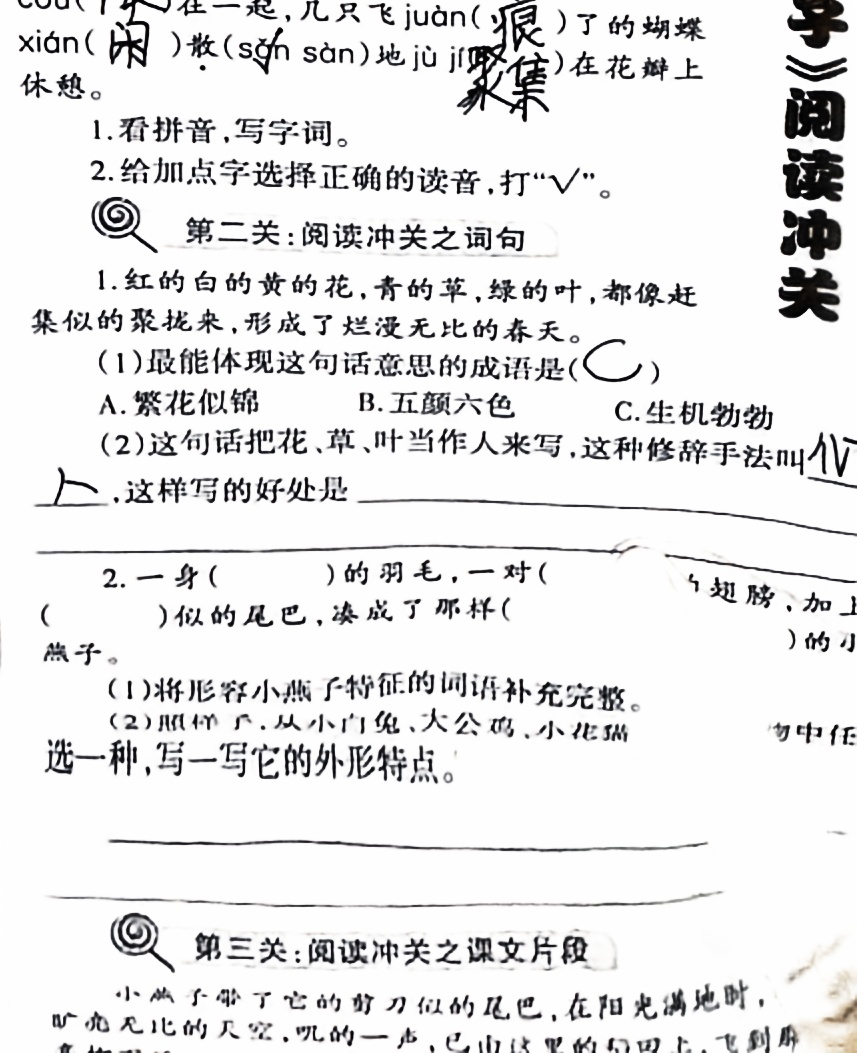 在一起,几只飞juàn( )了的蝴蝶
xián(闲)散(sǎn sàn)地jù jí(聚集)在花瓣上
休憩。
1.看拼音,写字词。
2.给加点字选择正确的读音,打“√”。
第二关:阅读冲关之词句
1.红的白的黄的花,青的草,绿的叶,都像赶
集似的聚拢来,形成了烂漫无比的春天。
(1)最能体现这句话意思的成语是(C)
A.繁花似锦 B.五颜六色 C.生机勃勃
(2)这句话把花、草、叶当作人来写,这种修辞手法叫
,这样写的好处是
2.一身( )的羽毛,一对( 翅膀,加上
( )似的尾巴,凑成了那样( )的小
燕子。
(1)将形容小燕子特征的词语补充完整。
(2)照样子,从小白兔、大公鸡、小花猫 物中任
选一种,写一写它的外形特点。
第三关:阅读冲关之课文片段
小燕子带了它的剪刀似的尾巴,在阳光满地时,
旷亮无比的天空,叽的一声,已由这里的稻田上,飞到
》阅读冲关